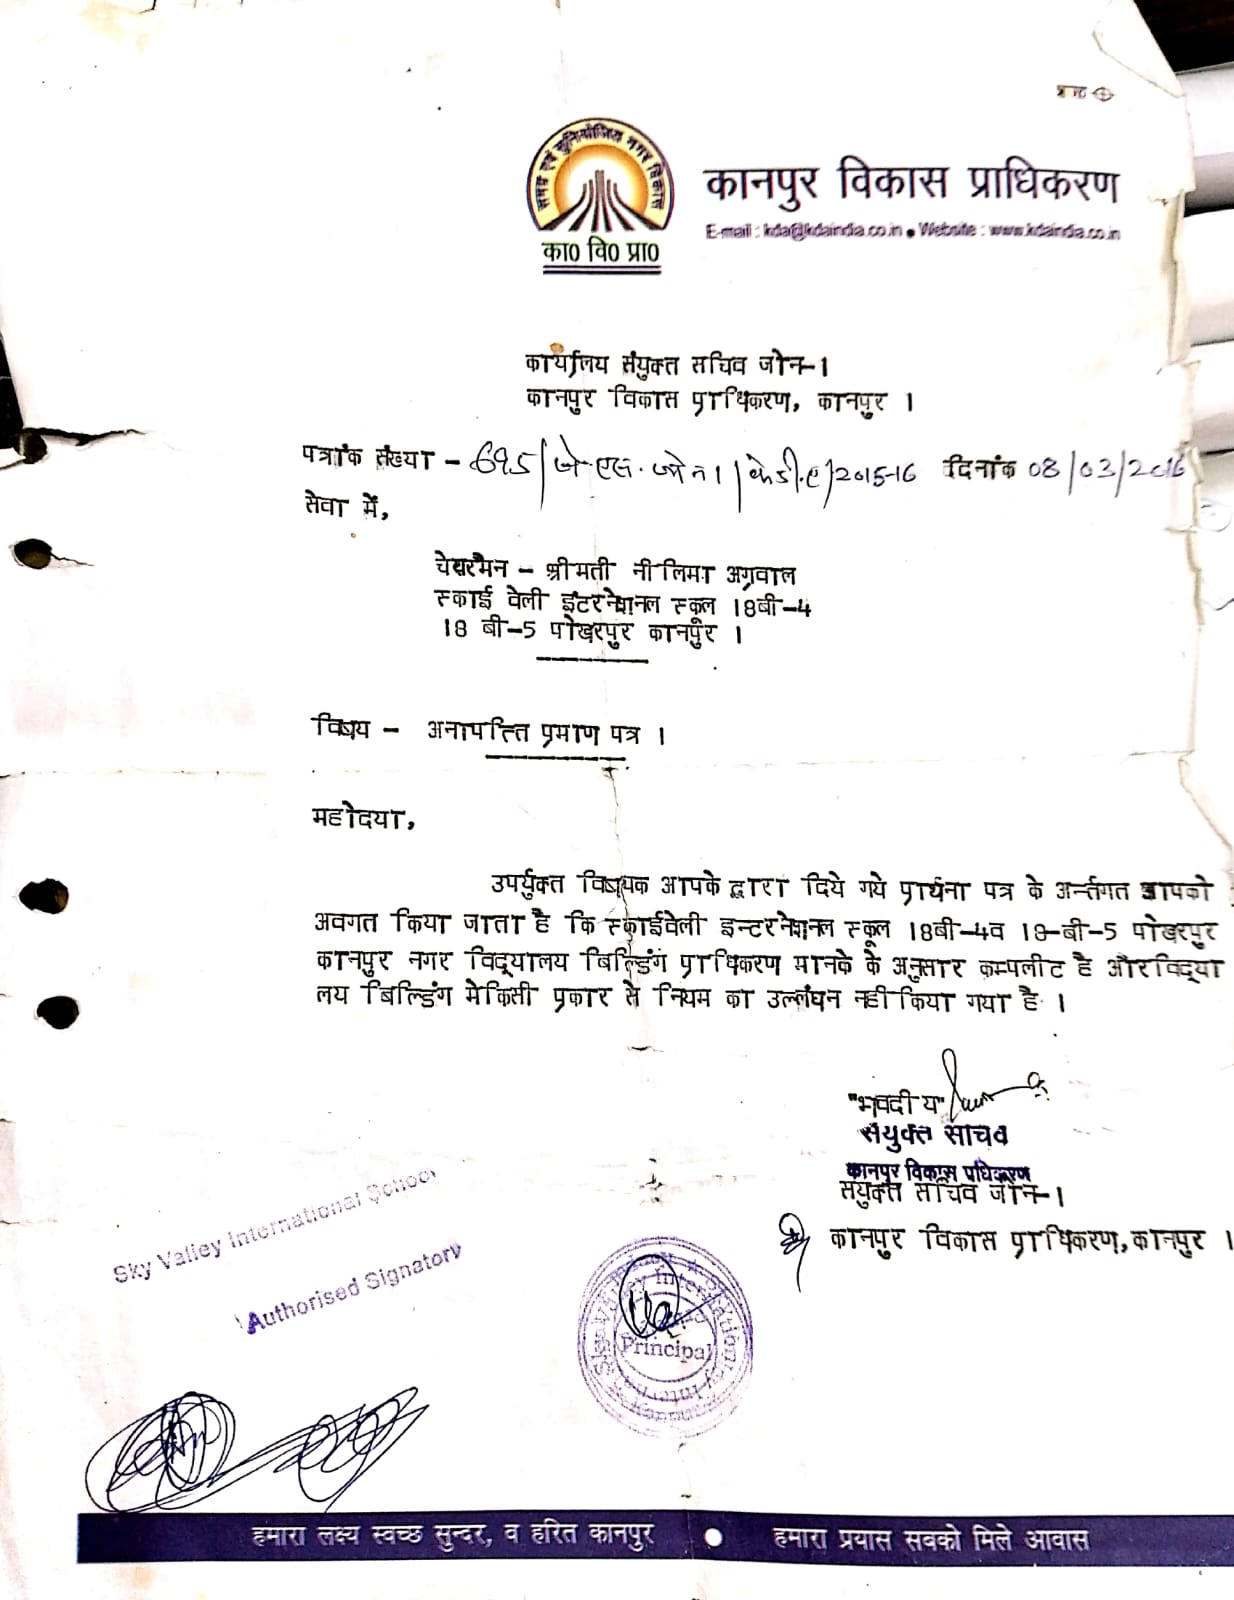 स्वच्छ एवं सुनियोजित नगर विकास
का0 वि0 प्रा0
कानपुर विकास प्राधिकरण
E-mail : kda@kdaindia.co.in ● Website : www.kdaindia.co.in
कार्यालय संयुक्त सचिव जोन-1
कानपुर विकास प्राधिकरण, कानपुर ।
पत्रांक संख्या - 695/जे.एस. जोन1/के.डी.ए/2015-16 दिनांक 08/03/2016
सेवा में,
चेयरमैन - श्रीमती नीलिमा अग्रवाल
स्काई वेली इंटरनेशनल स्कूल 18बी-4
18 बी-5 पोखरपुर कानपुर ।
विषय - अनापत्ति प्रमाण पत्र ।
महोदया,
उपर्युक्त विषयक आपके द्वारा दिये गये प्रार्थना पत्र के अर्न्तगत आपको
अवगत किया जाता है कि स्काईवेली इन्टरनेशनल स्कूल 18बी-4व 18-बी-5 पोखरपुर
कानपुर नगर विद्यालय बिल्डिंग प्राधिकरण मानके के अनुसार कम्पलीट है औरविद्या
लय बिल्डिंग मेकिसी प्रकार से नियम का उल्लंघन नही किया गया है ।
"भवदीय"
संयुक्त सचिव
कानपुर विकास प्रधिकरण
संयुक्त सचिव जोन-1
कानपुर विकास प्राधिकरण, कानपुर ।
Sky Valley International School
Authorised Signatory
Principal
हमारा लक्ष्य स्वच्छ सुन्दर, व हरित कानपुर ● हमारा प्रयास सबको मिले आवास